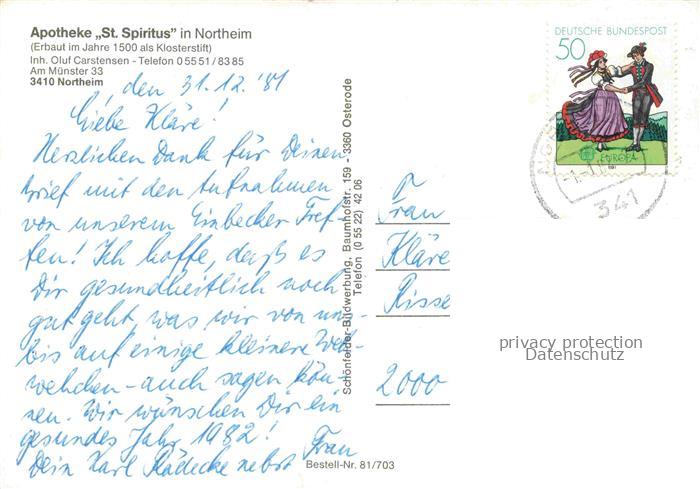 Apotheke „St. Spiritus" in Northeim
(Erbaut im Jahre 1500 als Klosterstift)
Inh. Oluf Carstensen - Telefon 0 55 51 / 83 85
Am Münster 33
3410 Northeim
, den 31.12.'81
Liebe Kläre!
Herzlichen Dank für Deinen
Brief mit den Aufnahmen
von unserem Einbecker Tref-
fen! Ich hoffe, daß es
Dir gesundheitlich noch
gut geht, was wir von uns-
bis auf einige kleinere Weh-
wehchen - auch sagen kön-
nen. Wir wünschen Dir ein
gesundes Jahr 1982!
Dein Karl Rädecke nebst Frau
Schönfelder-Bildwerbung, Baumhofstr. 159 - 3360 Osterode
Telefon (0 55 22) 42 06
Bestell-Nr. 81/703
DEUTSCHE BUNDESPOST
50
EUROPA
1981
341
Frau
Kläre
Risse
2000
privacy protection
Datenschutz